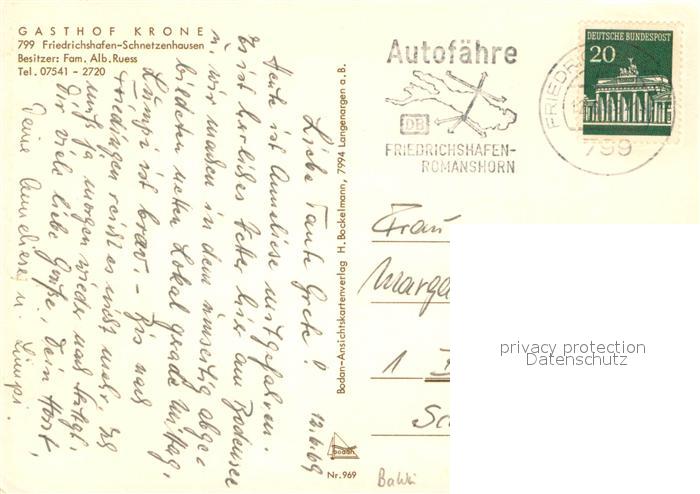 GASTHOF KRONE
799 Friedrichshafen-Schnetzenhausen
Besitzer: Fam. Alb. Ruess
Tel. 07541 - 2720
12.6.69
Liebe Tante Grete!
Heute ist Anneliese mitgefahren.
Es ist herrliches Wetter hier am Bodensee
u. wir machen in dem umseitig abge-
bildeten netten Lokal grade Mittag.
Lumpi ist brav. - Bis nach
reicht es nicht mehr, ich
muß ja morgen wieder nach
Dir viele liebe Grüße, Dein Horst,
Deine Anneliese u. Lumpi.
Bodan-Ansichtskartenverlag H. Bockelmann, 7994 Langenargen a. B.
bodan
Nr. 969
Autofähre
DB
FRIEDRICHSHAFEN-
ROMANSHORN
FRIEDR
799
DEUTSCHE BUNDESPOST
20
Frau
Marga
1
Sc
privacy protection
Datenschutz